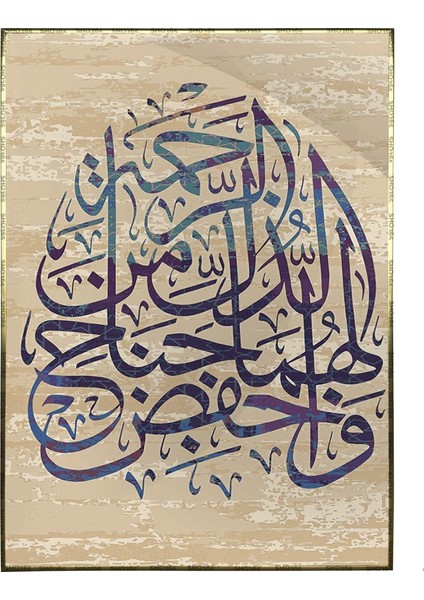 وَاخْفِضْ
لَهُمَا جَنَاحَ
الذُّلِّ مِنَ
الرَّحْمَةِ